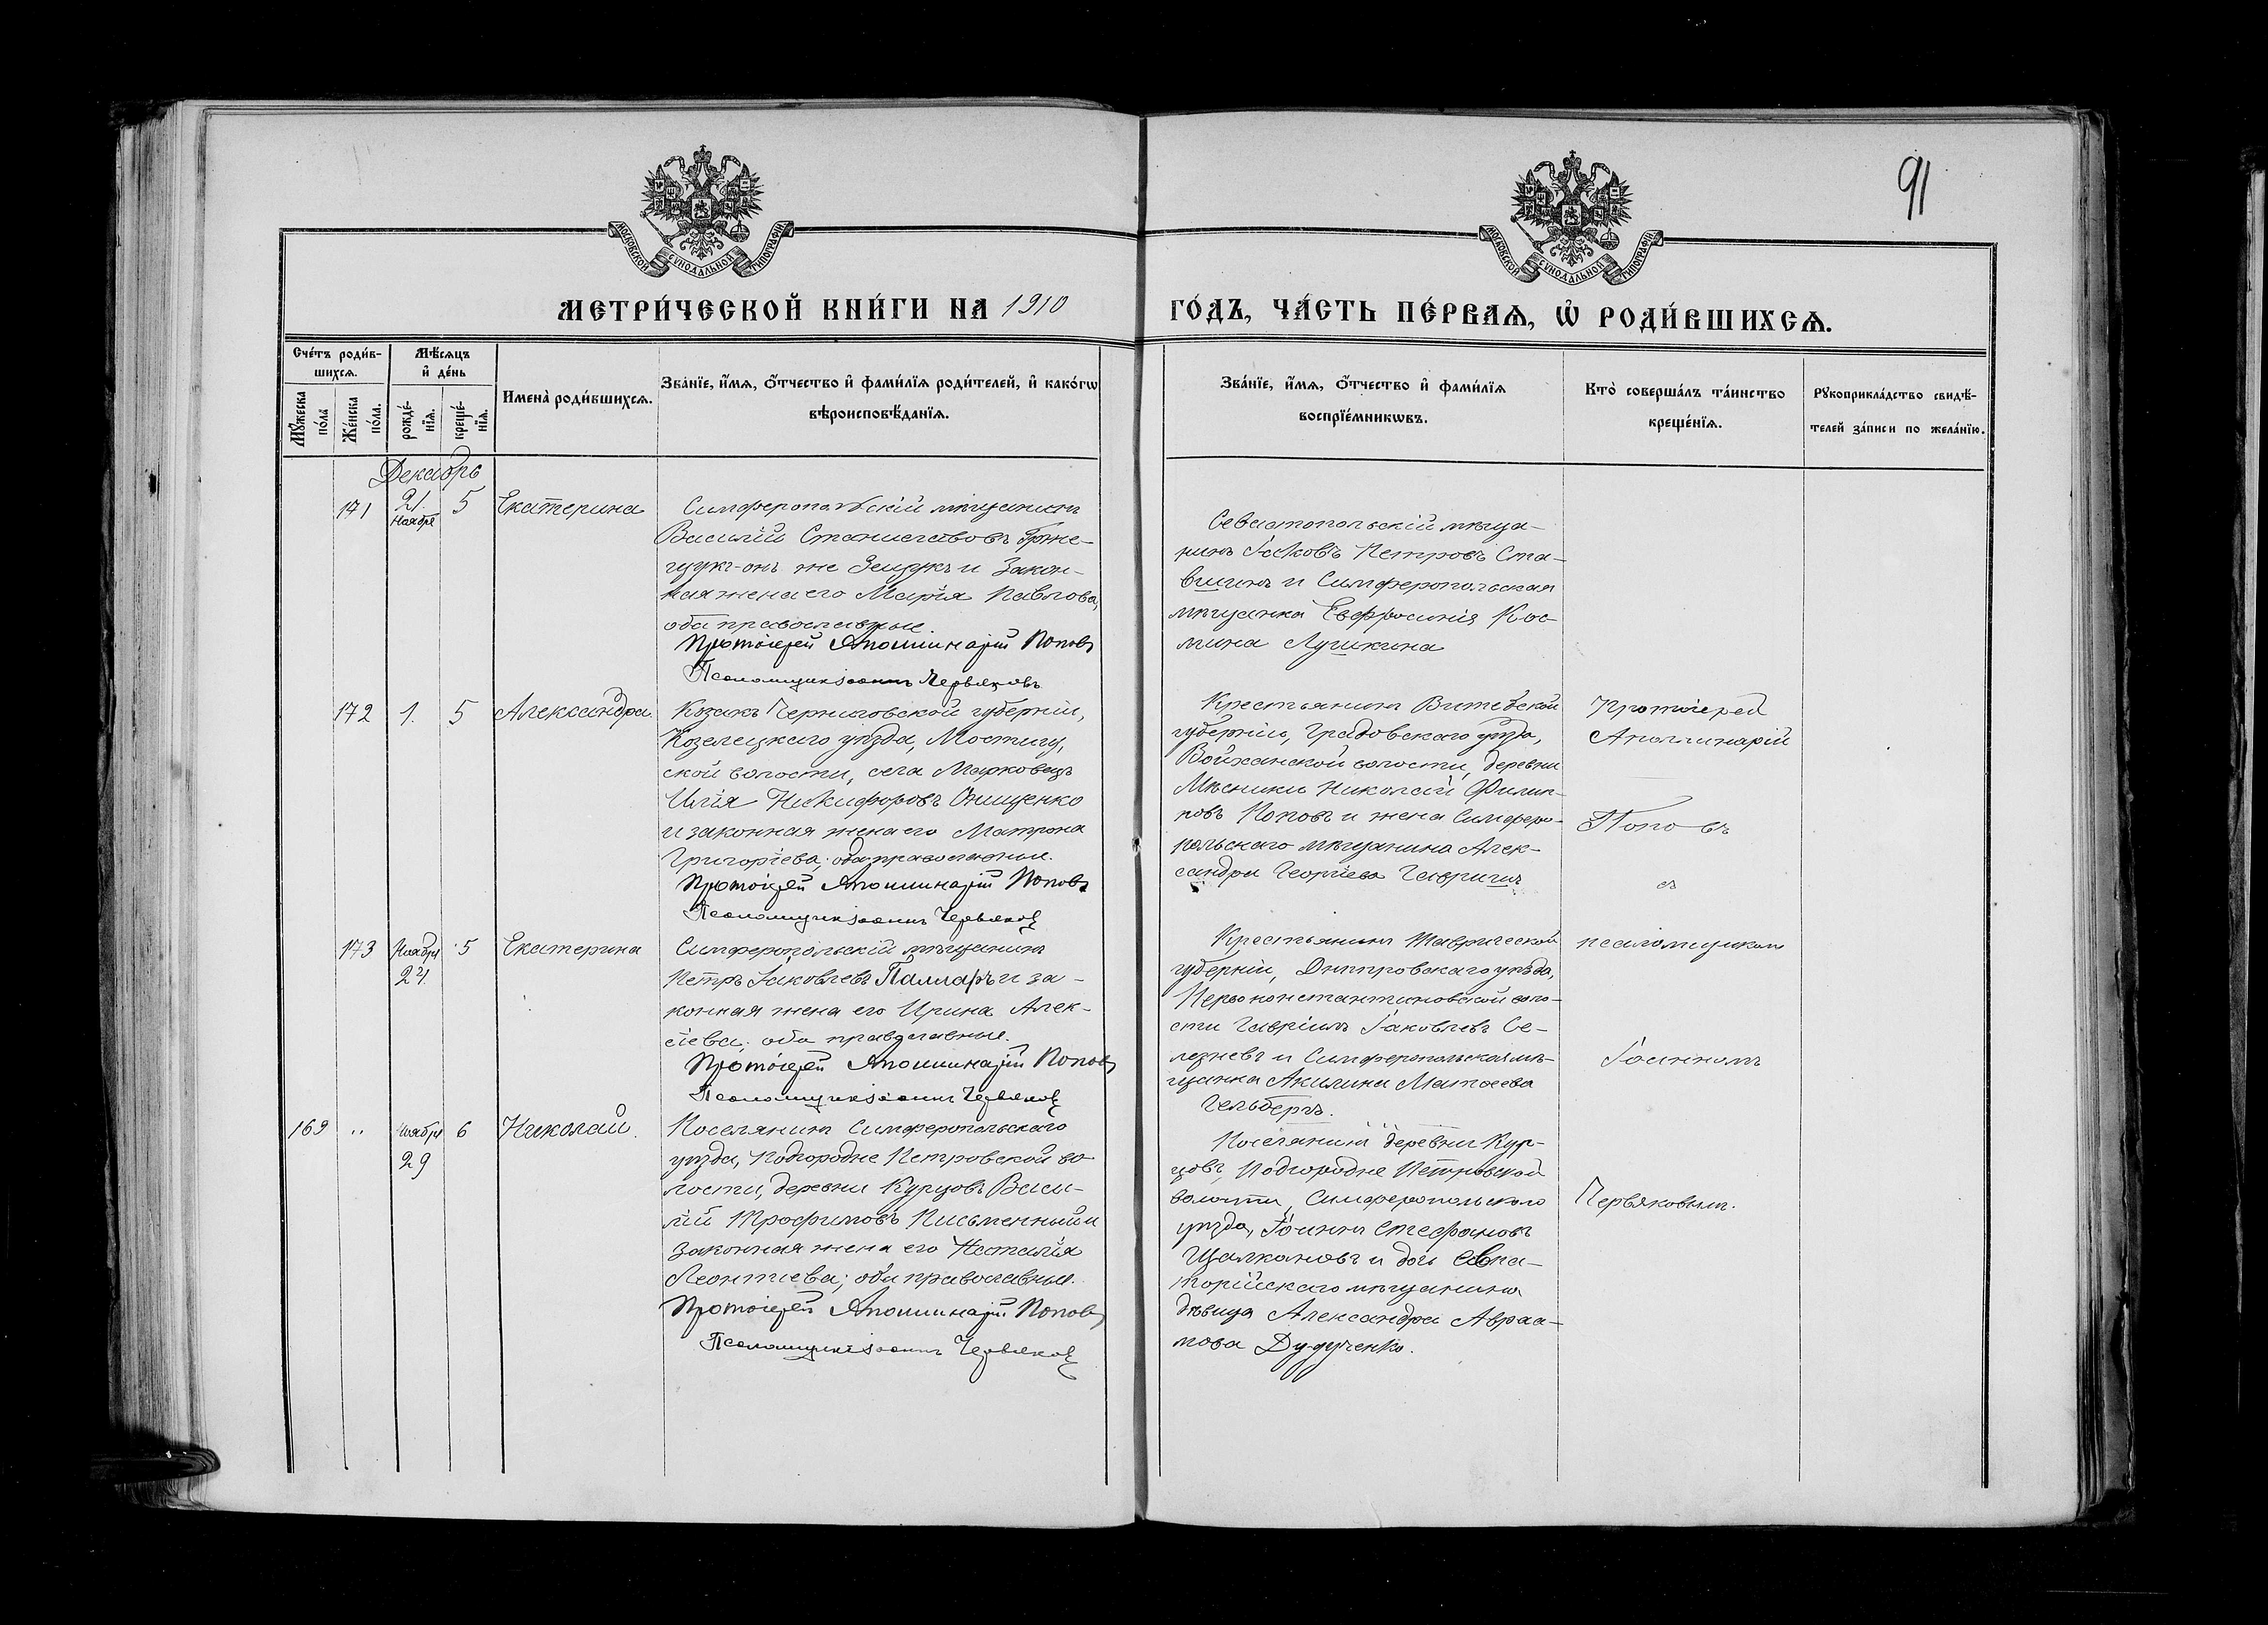 91
МОСКОВСКОЙ СѴНОДАЛЬНОЙ ТИПОГРАФІИ
МОСКОВСКОЙ СѴНОДАЛЬНОЙ ТИПОГРАФІИ
МЕТРИ́ЧЕСКОЙ КНИ́ГИ НА 1910
ГО́ДЪ, ЧА́СТЬ ПЕ́РВАѦ, Ѡ҆ РОДИ́ВШИХСѦ.
Сче́тъ роди́в-
шихсѧ.
Мѣ́сѧцъ
и҆ де́нь
Мꙋ́жеска
по́ла
Же́нска
по́ла.
рожде́-
нїѧ.
креще́-
нїѧ.
Имена̀ роди́вшихсѧ.
Зва́нїе, и҆́мѧ, ѻ҆́тчество и҆ фами́лїѧ роди́телей, и҆ како́гѡ
вѣроисповѣ́данїѧ.
Зва́нїе, и҆́мѧ, ѻ҆́тчество и҆ фами́лїѧ
воспрїе́мникѡвъ.
Кто̀ соверша́лъ та́инство
креще́нїѧ.
Рꙋкоприкла́дство свидѣ́-
телей за́писи по жела́нїю.
Декабрь
171
21
Ноября
5
Екатерина
Симферопольскій мѣщанинъ
Василій Станиславовъ
-онъ же и закон-
ная жена его Марія Павлова,
оба православные.
Протоіерей Аполлинарій Поповъ
Псаломщикъ Іоаннъ Червяковъ
Севастопольскій мѣща-
нинъ Іаковъ Петровъ Ста-
вшинъ и Симферопольская
мѣщанка Евфросинія Кос-
мина Лушкина
172
1.
5
Александра.
Козакъ Черниговской губерніи,
Козелецкаго уѣзда, Мостищ-
ской волости, села Марковецъ
Илія Никифоровъ Онищенко
и законная жена его Матрона
Григоріева; оба православные.
Протоіерей Аполлинарій Поповъ
Псаломщикъ Іоаннъ Червяковъ
Крестьянинъ Витебской
губерніи, уѣзда,
Войханской волости, деревни
Мясники Николай Филип-
повъ Поповъ и жена Симферо-
польскаго мѣщанина Алек-
сандра Георгіева
Протоіерей
Аполлинарій
Поповъ
съ
173
Ноября
24
5
Екатерина
Симферопольскій мѣщанинъ
Петръ Іаковлевъ Палмаръ и за-
конная жена его Ирина Алек-
сіева; оба православные.
Протоіерей Аполлинарій Поповъ
Псаломщикъ Іоаннъ Червяковъ
Крестьянинъ Таврической
губерніи, Днѣпровскаго уѣзда,
воло-
сти Гавріилъ Іаковлевъ Се-
лезневъ и Симферопольская мѣ-
щанка Акилина Матѳеева
Гельбергъ.
псаломщикомъ
Іоанномъ
169
"
Ноября
29
6
Николай.
Поселянинъ Симферопольскаго
уѣзда, Подгородне Петровской во-
лости, деревни Курцовъ Васи-
лій Трофимовъ Письменный и
законная жена его Наталія
Леонтіева; оба православные.
Протоіерей Аполлинарій Поповъ
Псаломщикъ Іоаннъ Червяковъ
Поселянинъ деревни Кур-
цовъ, Подгородне Петровской
волости, Симферопольскаго
уѣзда, Іоаннъ Стефановъ
Щалкановъ и дочь Евпа-
торійскаго мѣщанина
дѣвица Александра Авраа-
мова Дудученко.
Червяковымъ.